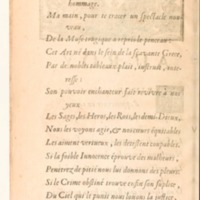 hommage.
Ma main, pour te tracer un spectacle nou-
veau,
De la Muse tragique a repris le pinceau:
Cet Art né dans le sein de la sçavante Grece,
Par de nobles tableaux plaît, instruit, inté-
resse:
Son pouvoir enchanteur fait revivre à nos
yeux
Les Sages, les Héros, les Rois, les demi-Dieux.
Nous les voyons agir, & nos cœurs équitables
Les aiment vertueux, les détestent coupables.
Si la foible Innocence éprouve des malheurs,
Penetrez de pitié nous lui donnons des pleurs;
Si le Crime obstiné trouve enfin son suplice,
Du Ciel qui le punit nous louons la justice,